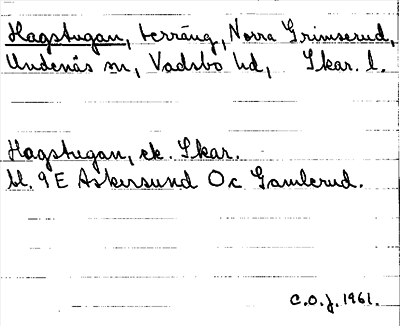 Hagstugan, terräng, Norra Grimserud,
Undenäs sn, Vadsbo hd, Skar. l.
Hagstugan, ek. Skar.
bl. 9E Askersund Oc Gamlerud.
C.O.J. 1961.